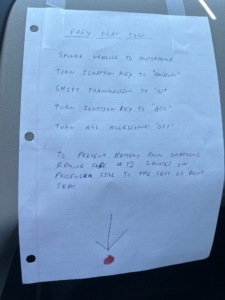 EASY FLAT TOW
SECURE VEHICLE TO MOTORHOME
TURN IGNITION KEY TO "ON/RUN"
SHIFT TRANSMISSION TO "N"
TURN IGNITION KEY TO "ACC"
TURN ALL ACCESSORIES "OFF"
TO PREVENT BATTERY FROM DRAINING
REMOVE FUSE #32 LOCATED ON
PASSENGER SIDE TO THE LEFT OF FRONT
SEAT